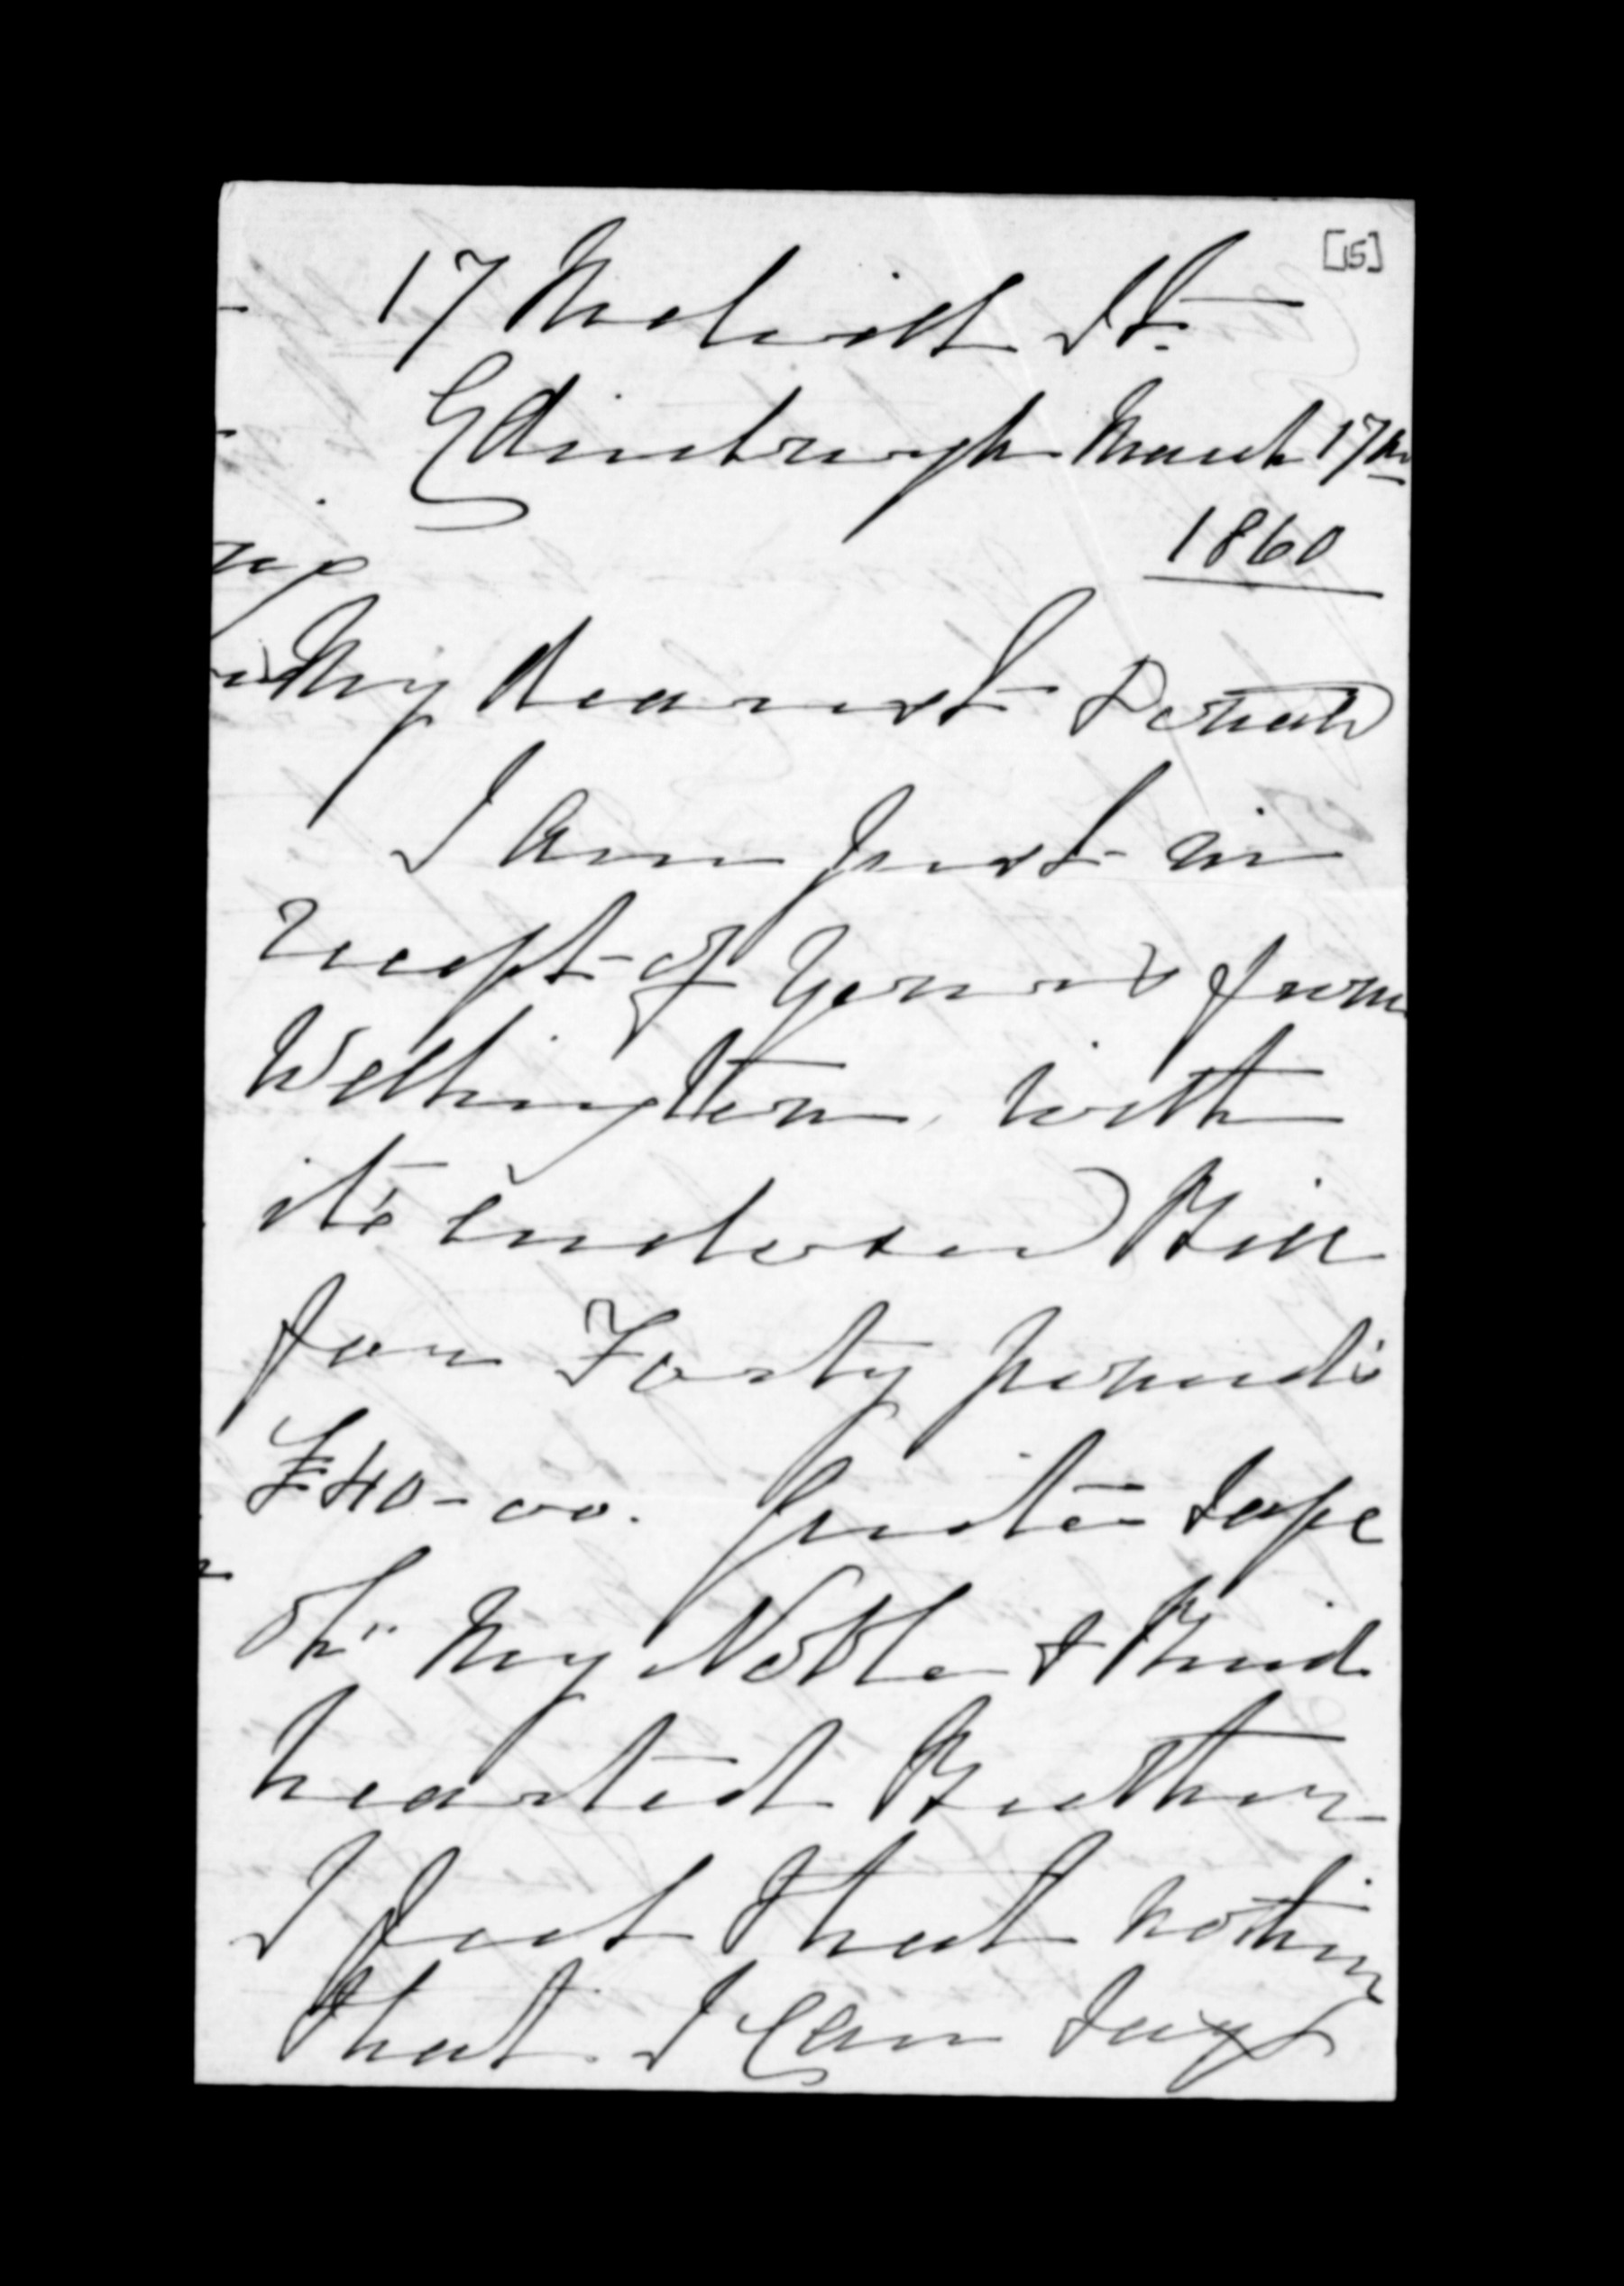 [15]
17 Melville St.
Edinburgh March 17th
1860
My dearest Donald
I am just in
receipt of yours from
Wellington, with
it's enclosed Bill
for Forty pounds
£40-00. quite safe
oh" my Noble & Kind
hearted Brother
I feel that nothing
that I can say